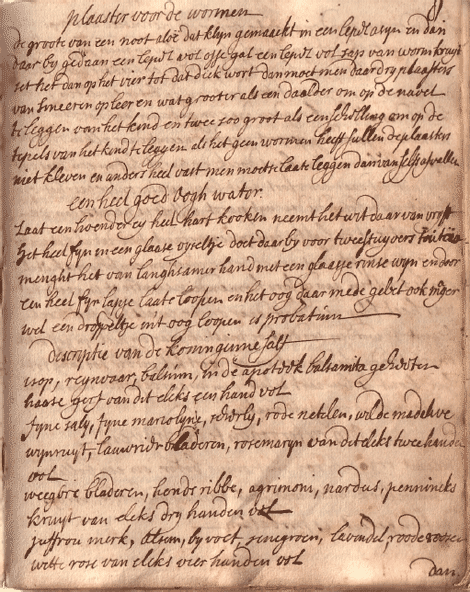 plaaster voor de wormen
de groote van een noot aloë dat klyn gemaackt in een lepel asyn en dan
daar by gedaan een lepel vol osse gal een lepel vol sap van wormkruyt
set het dan op het vier tot dat dick wort dan moet men daar dry plaasters
van smeeren op leer en wat grooter als een daalder om op de navel
te leggen van het kend en twee zoo groot als een schelling om op de
tepels van het kend te leggen als het geen wormen heeft sullen de plaasters
niet kleven en anders heel vast men moetse laate leggen dan van self afvallen
een heel goed oogh water
Laat een hoender ey heel hart kooken neemt het wit daar van vryft
het heel fyn in een glaase vyseltje doet daar by voor twee stuyvers
menght het van langhsamer hand met een glaasje rinse wyn en door
een heel fyn lapje laate loopen en het oog daar mede gebet ook
wel een droppeltje int oog loopen is probatum
Discriptie van de koninginne salf
isop, reynvaar, balsum, in de apoteek balsamita geheeten
haase gerf van dit elks een hand vol
fyne saly, fyne mariolyne, rode netelen, wilde
wynruyt, lauwrier bladeren, rosemaryn van dit elks twee handen
vol
weegbre bladeren, honds ribbe, agrimoni, nardus, pennincks
kruyt van elcks dry handen vol
juffrou merk, alsem, by voet, senegroen, lavendel, roode roosen
witte rose van elcks vier handen vol
dan